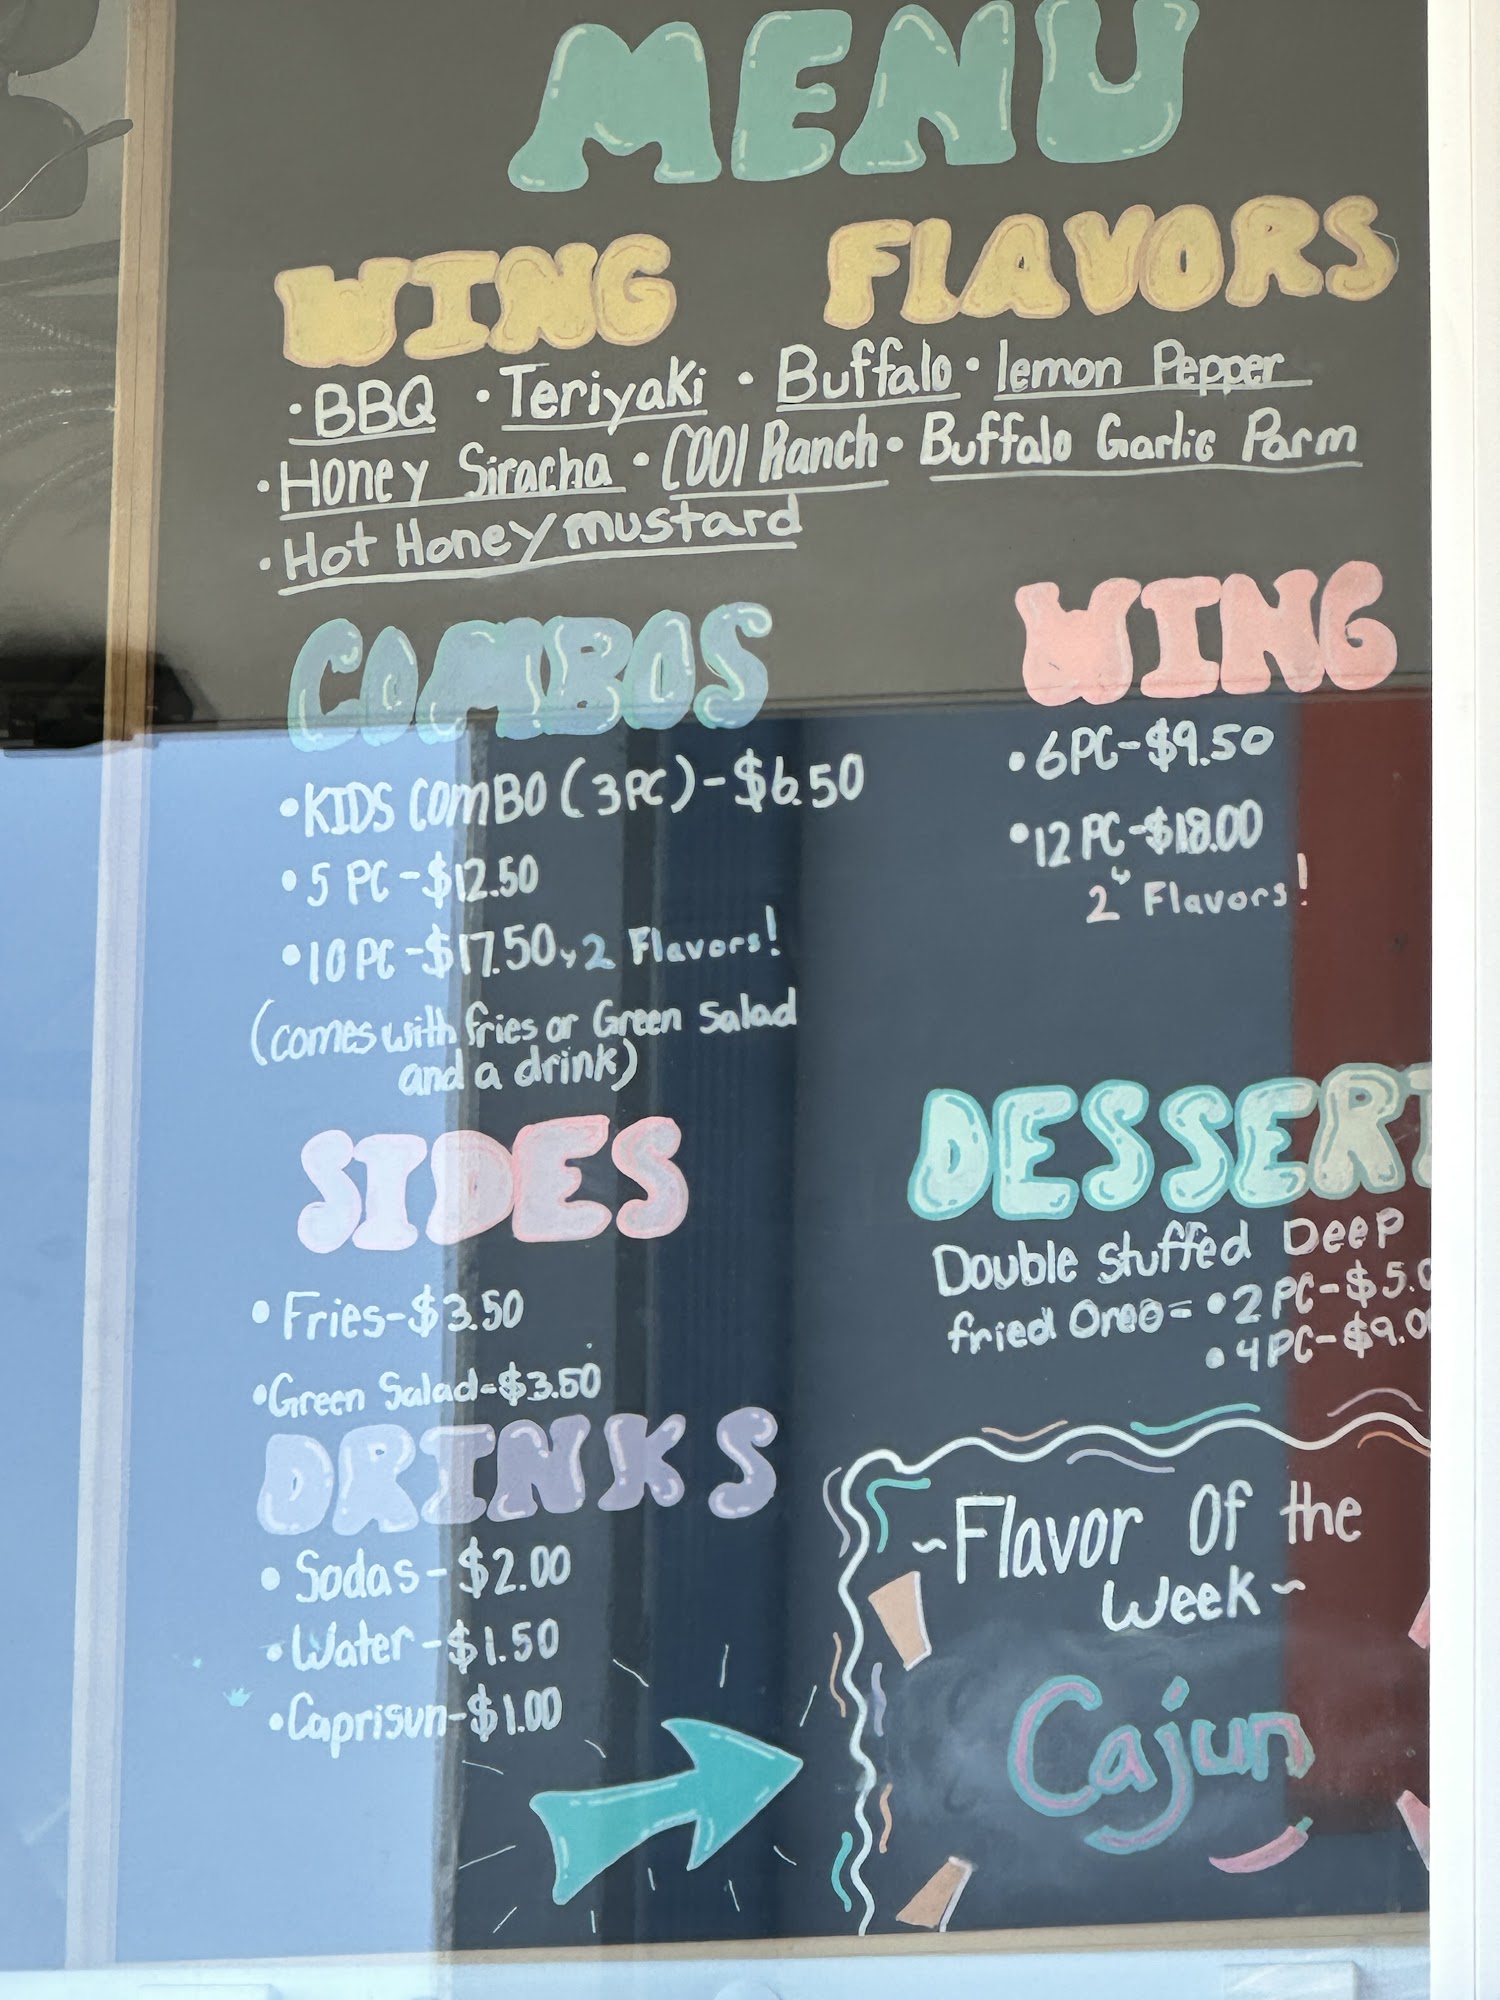 MENU
WING FLAVORS
· BBQ · Teriyaki · Buffalo · lemon Pepper
· Honey Siracha · Cool Ranch · Buffalo Garlic Parm
· Hot Honey mustard
COMBOS
• KIDS COMBO (3PC) - $6.50
• 5 PC - $12.50
• 10 PC - $17.50, 2 Flavors!
(comes with fries or Green Salad
and a drink)
WING
• 6PC - $9.50
• 12 PC - $18.00
2 Flavors!
SIDES
• Fries - $3.50
• Green Salad = $3.50
DESSERT
Double stuffed Deep
fried Oreo = • 2 PC - $5.0
• 4 PC - $9.0
DRINKS
• Sodas - $2.00
• Water - $1.50
• Caprisun - $1.00
~ Flavor Of the
Week ~
Cajun